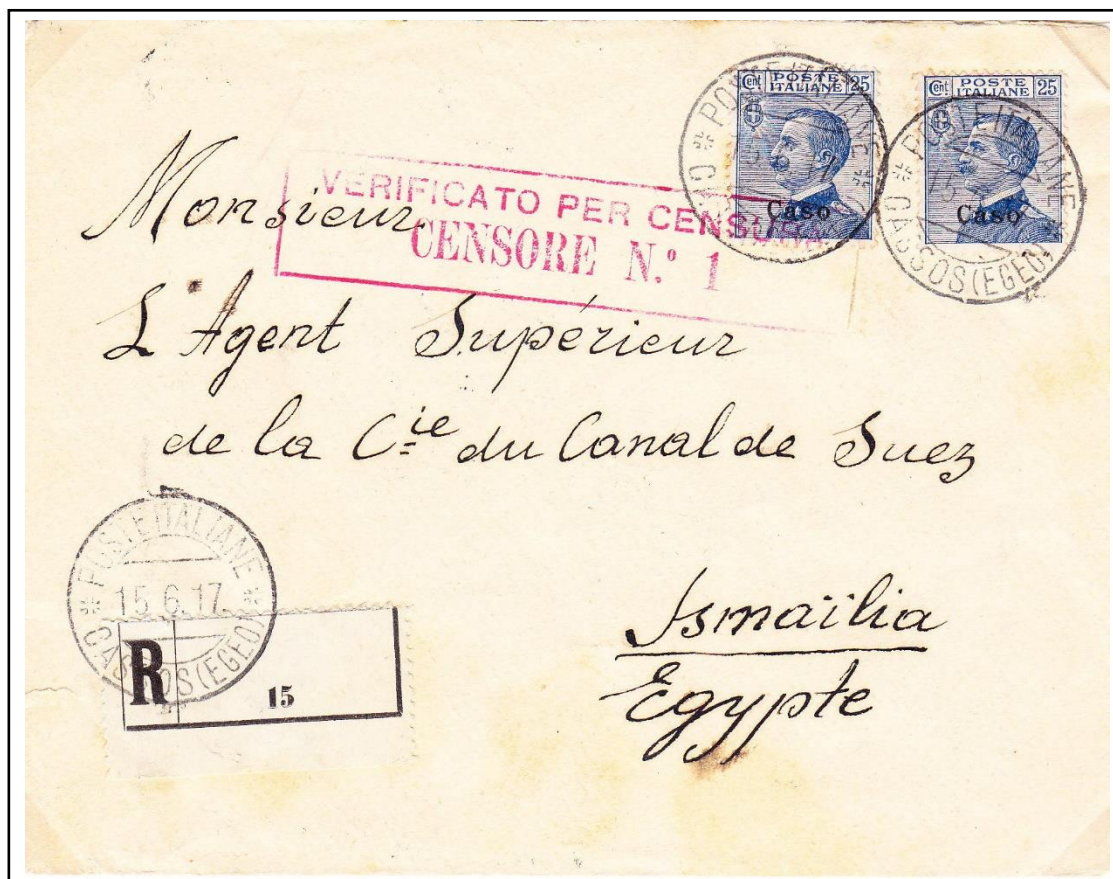 Cent POSTE ITALIANE 25
Caso
Cent POSTE ITALIANE 25
Caso
POSTE ITALIANE
POSTE ITALIANE
CASSOS (EGEO)
VERIFICATO PER CENSURA
CENSORE N.º 1
Monsieur
L'Agent Supérieur
de la Cie du Canal de Suez
Ismaïlia
Egypte
POSTE ITALIANE
15.6.17.
CASSOS (EGEO)
R 15